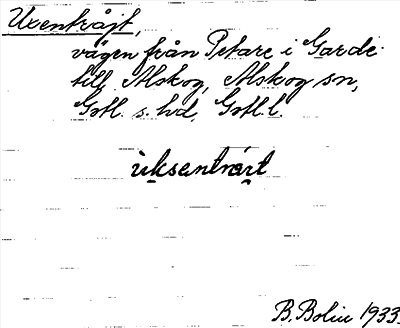 Uxentråjt,
vägen från Petare i Garde
till Alskog, Alskog sn,
Gotl. s. hd, Gotl. l.
ùksentrart
B. Bolin 1933.